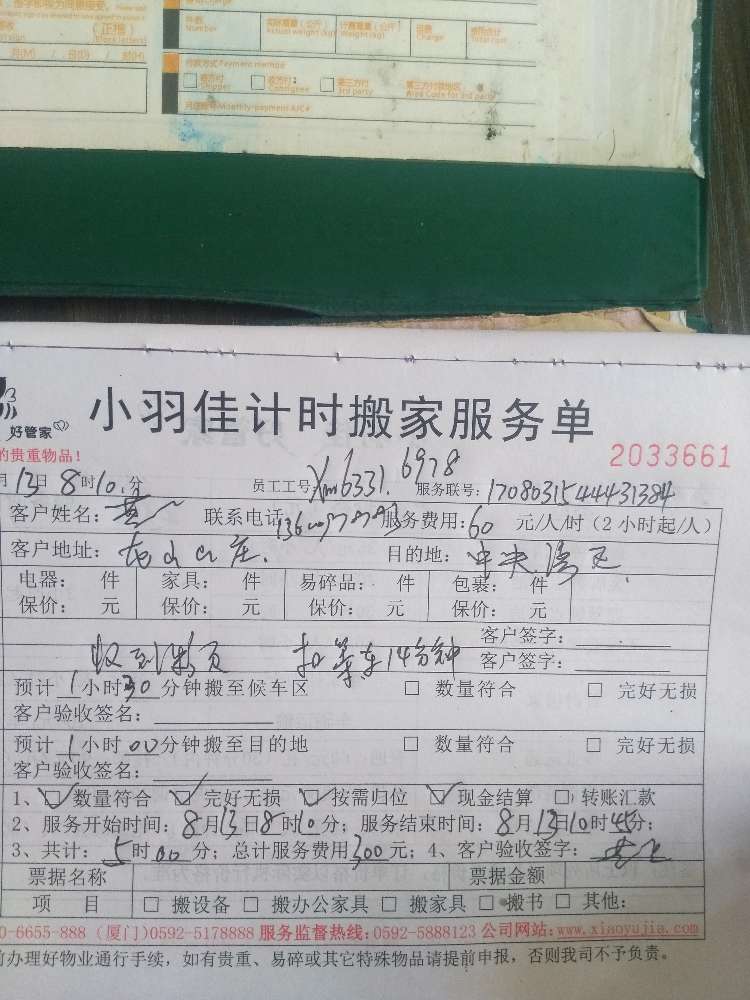 件数 实际重量（公斤） 计费重量（公斤） 运费
Number Actual weight(kg) Weight(kg) Charge
付款方式Payment method
寄方付 Shipper 收方付 Consignee 第三方付 3rd party 第三方付款地区
月结账号Monthly-payment A/C#
小羽佳计时搬家服务单
好管家
的贵重物品！
2033661
月13日8时10分 员工工号 Xm6331.6978 服务联号：17080315444431384
客户姓名： 联系电话 服务费用：60 元/人/时（2小时起/人）
客户地址： 目的地：中央
电器： 件 家具： 件 易碎品： 件 包装： 件
保价： 元 保价： 元 保价： 元 保价： 元
客户签字：
收到 扣等车14分钟 客户签字：
预计1小时30分钟搬至候车区 □ 数量符合 □ 完好无损
客户验收签名：
预计1小时00分钟搬至目的地 □ 数量符合 □ 完好无损
客户验收签名：
1、☑数量符合 ☑完好无损 ☑按需归位 ☑现金结算 □转账汇款
2、服务开始时间：8月13日8时10分；服务结束时间：8月13日10时45分；
3、共计：5时00分；总计服务费用300元；4、客户验收签字：
票据名称 票据金额
项 目 □ 搬设备 □ 搬办公家具 □ 搬家具 □ 搬书 □ 其他：
0-6655-888 (厦门)0592-5178888 服务监督热线：0592-5888123 公司网站：www.xiaoyujia.com
前办理好物业通行手续，如有贵重、易碎或其它特殊物品请提前申报，否则我司不予负责。